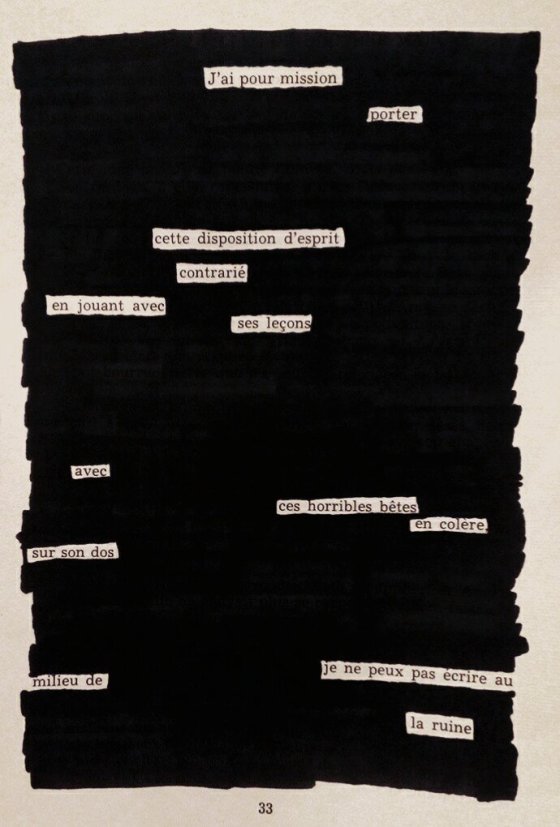 J'ai pour mission
porter
cette disposition d'esprit
contrarié
en jouant avec
ses leçons
avec
ces horribles bêtes
en colère,
sur son dos
je ne peux pas écrire au
milieu de
la ruine
33